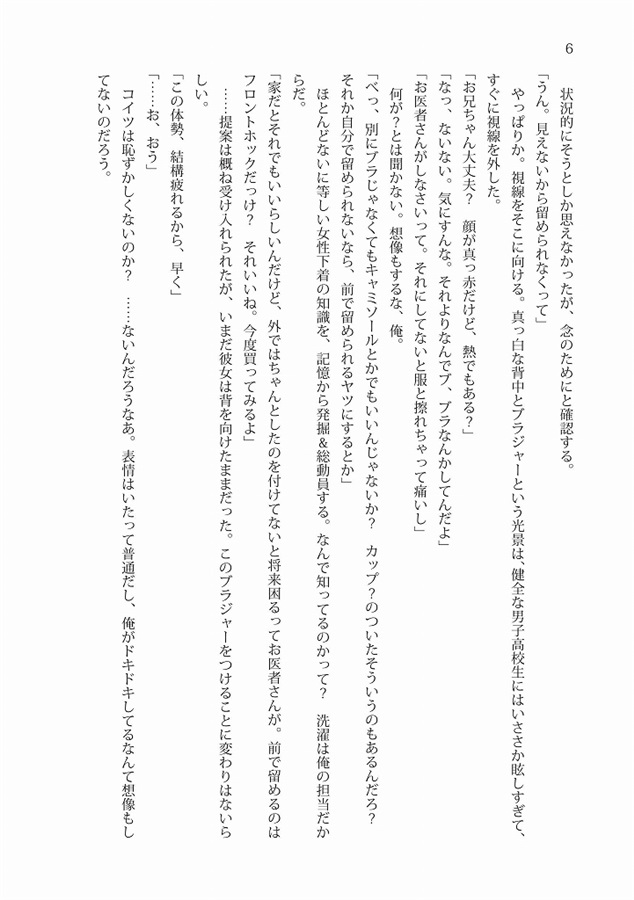 6
状況的にそうとしか思えなかったが、念のためにと確認する。
「うん。見えないから留められなくって」
やっぱりか。視線をそこに向ける。真っ白な背中とブラジャーという光景は、健全な男子高校生にはいささか眩しすぎて、
すぐに視線を外した。
「お兄ちゃん大丈夫？　顔が真っ赤だけど、熱でもある？」
「なっ、ないない。気にすんな。それよりなんでブ、ブラなんかしてんだよ」
「お医者さんがしなさいって。それにしてないと服と擦れちゃって痛いし」
何が？とは聞かない。想像もするな、俺。
「べっ、別にブラじゃなくてもキャミソールとかでもいいんじゃないか？　カップ？のついたそういうのもあるんだろ？
それか自分で留められないなら、前で留められるヤツにするとか」
ほとんどないに等しい女性下着の知識を、記憶から発掘＆総動員する。なんで知ってるのかって？　洗濯は俺の担当だか
らだ。
「家だとそれでもいいらしいんだけど、外ではちゃんとしたのを付けてないと将来困るってお医者さんが。前で留めるのは
フロントホックだっけ？　それいいね。今度買ってみるよ」
……提案は概ね受け入れられたが、いまだ彼女は背を向けたままだった。このブラジャーをつけることに変わりはないら
しい。
「この体勢、結構疲れるから、早く」
「……お、おう」
コイツは恥ずかしくないのか？　……ないんだろうなあ。表情はいたって普通だし、俺がドキドキしてるなんて想像もし
てないのだろう。